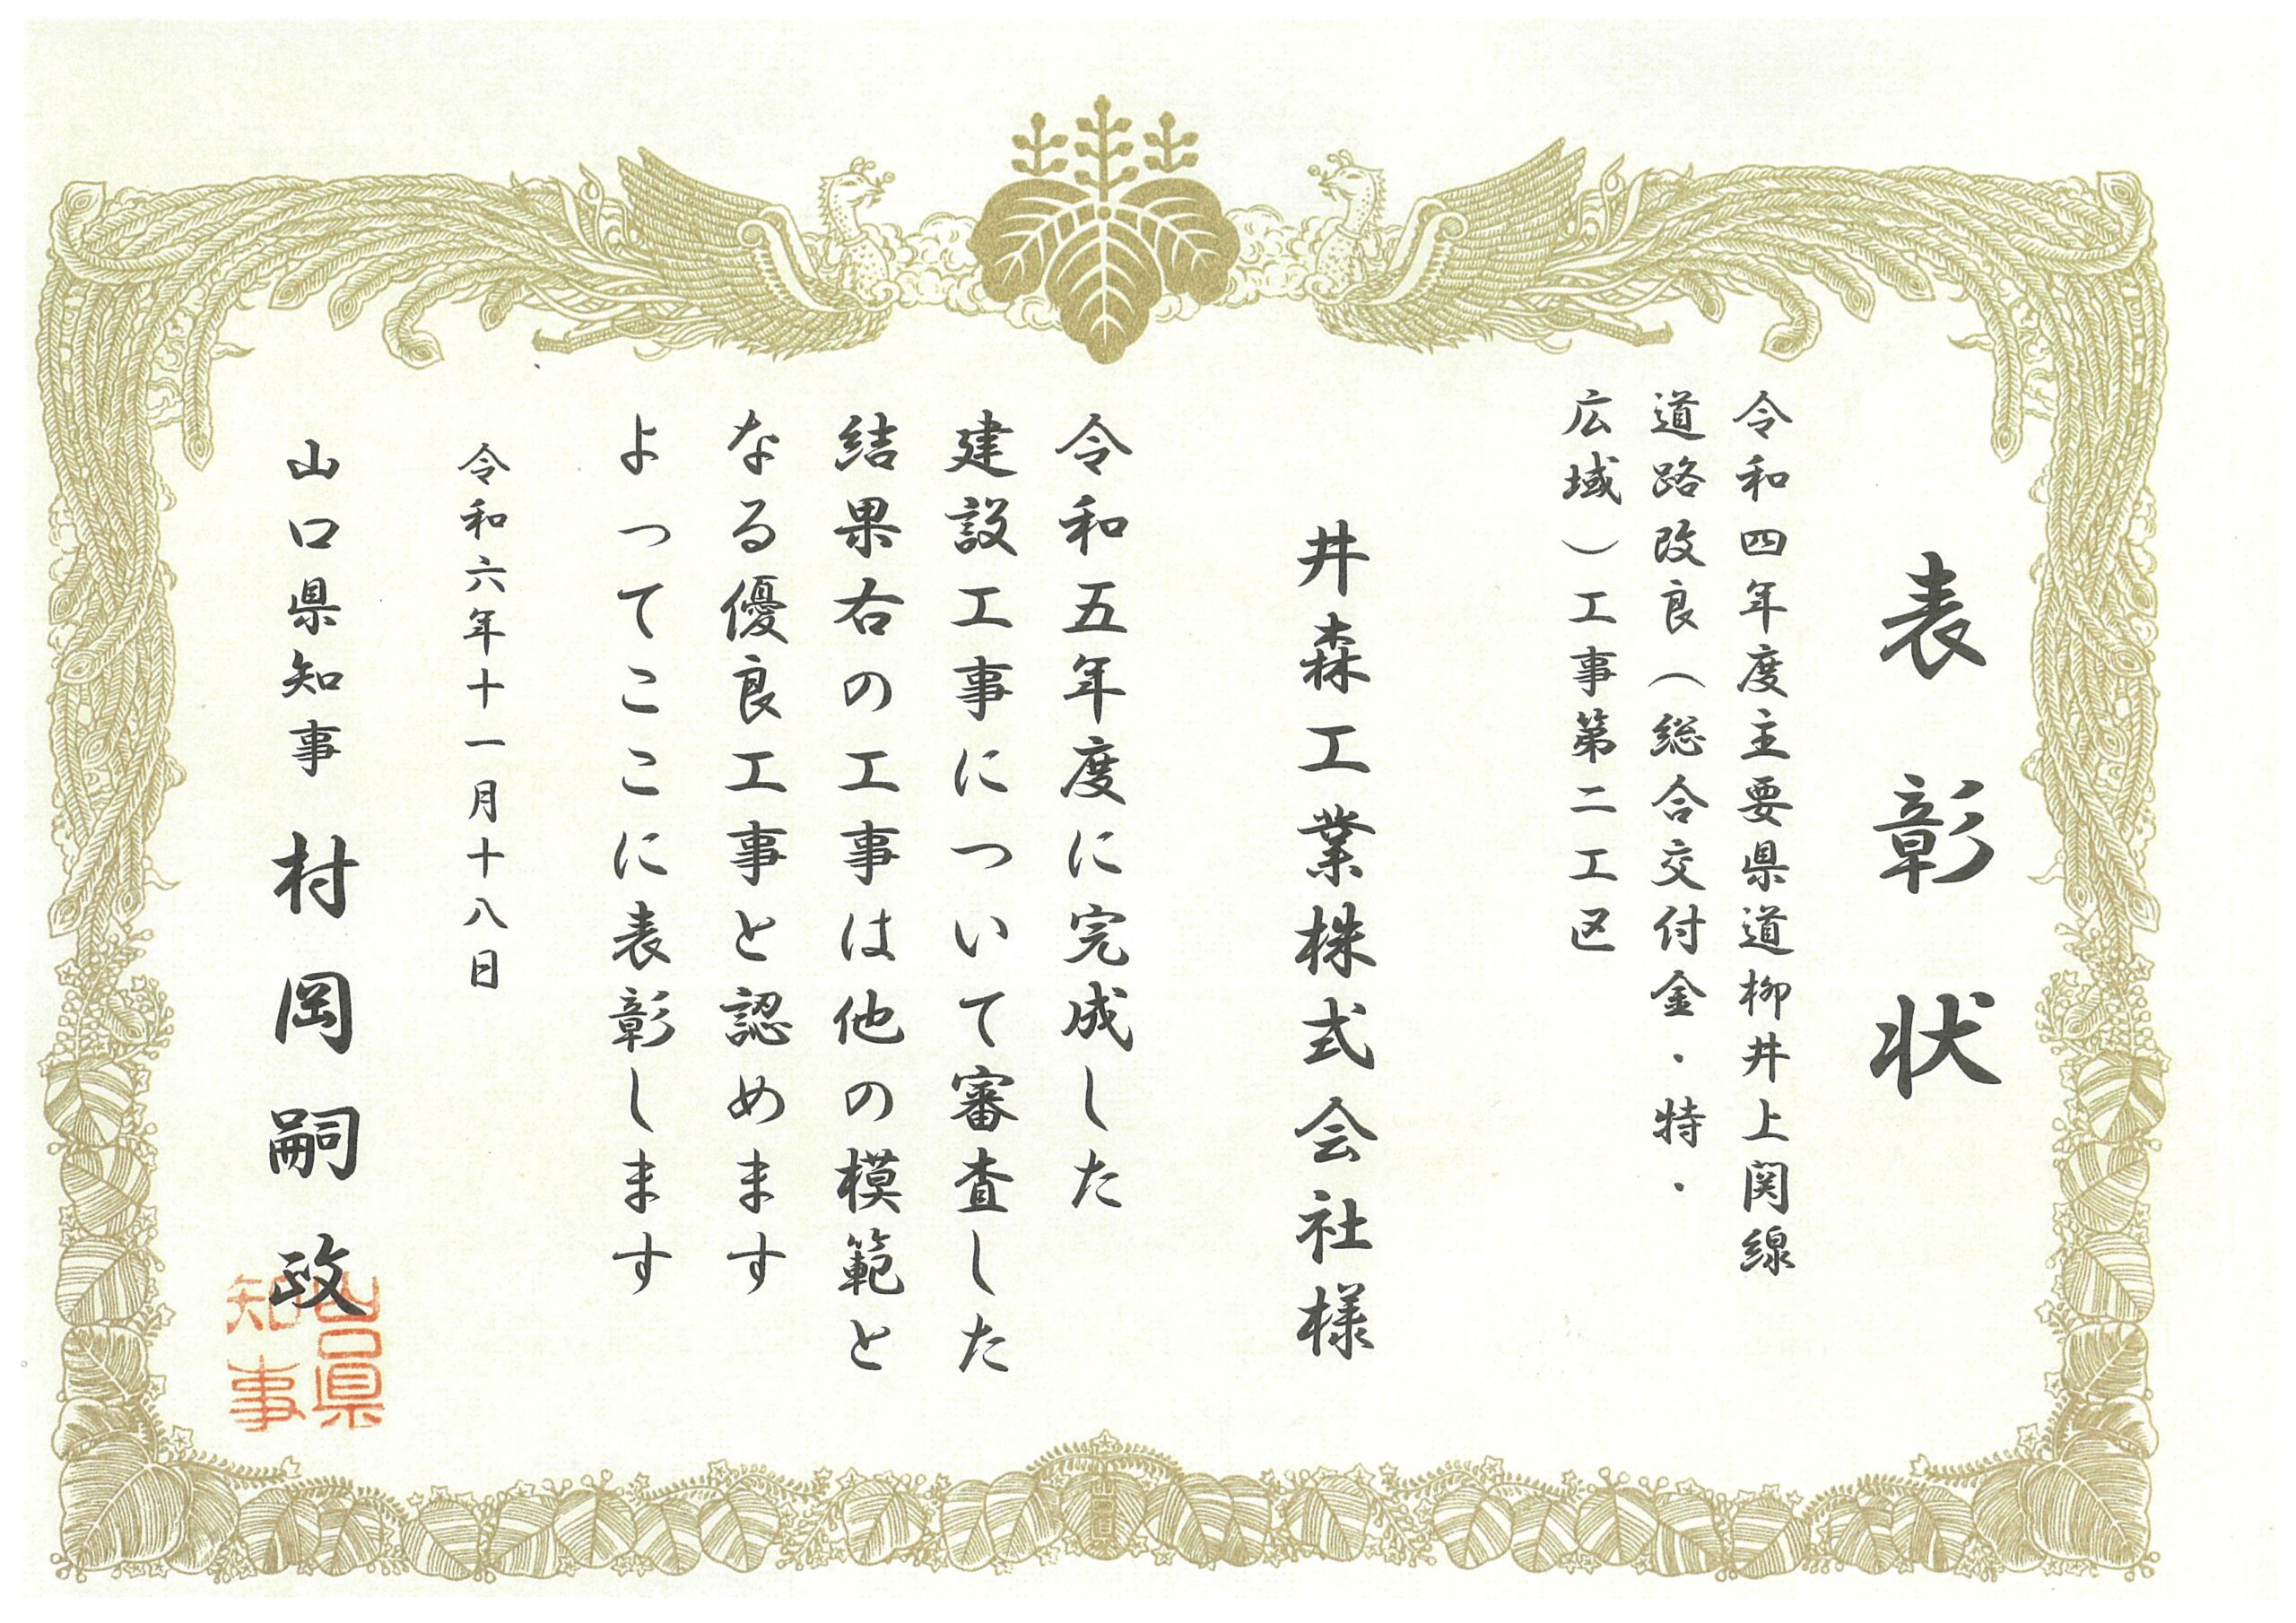 表彰状
令和四年度主要県道柳井上関線
道路改良（総合交付金・特・
広域）工事第二工区
井森工業株式会社様
令和五年度に完成した
建設工事について審査した
結果右の工事は他の模範と
なる優良工事と認めます
よってここに表彰します
令和六年十一月十八日
山口県知事 村岡嗣政
山口県
知事